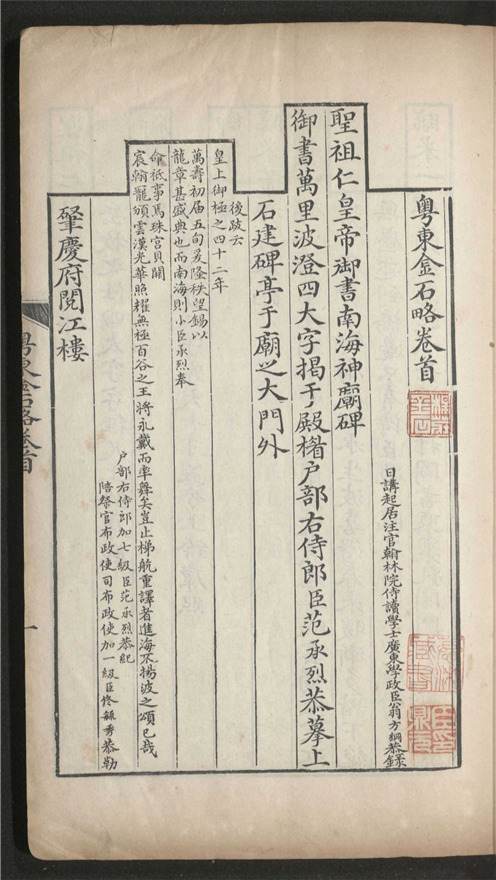 粵東金石略卷首
日講起居注官翰林院侍讀學士廣東學政臣翁方綱恭錄
聖祖仁皇帝御書南海神廟碑
御書萬里波澄四大字揭于殿楣戶部右侍郎臣范承烈恭摹上
石建碑亭于廟之大門外
後跋云
皇上御極之四十二年
萬壽初届五旬爰隆秩望錫以
龍章甚盛典也而南海則小臣承烈奉
命祇事焉珠宮貝闕
宸翰寵頒雲漢光華照耀無極百谷之王將永戴而率舞矣豈止梯航重譯者進海不揚波之頌已哉
戶部右侍郎加七級臣范承烈恭紀
陪祭官布政使司布政使加一級臣佟毓秀恭勒
肇慶府閱江樓
粵東金石略卷首
一